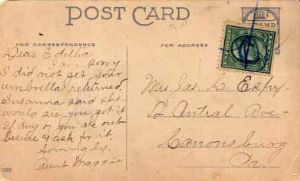 POST CARD
FOR CORRESPONDENCE
FOR ADDRESS
Dear Edetha
Sorry
I did not get your
umbrella returned.
Susanna said she
would see you got it
if any of you are out
ask for it.
Aunt Maggie
Mrs. Jas. L. Espy
Central Ave.
Canonsburg
Pa.